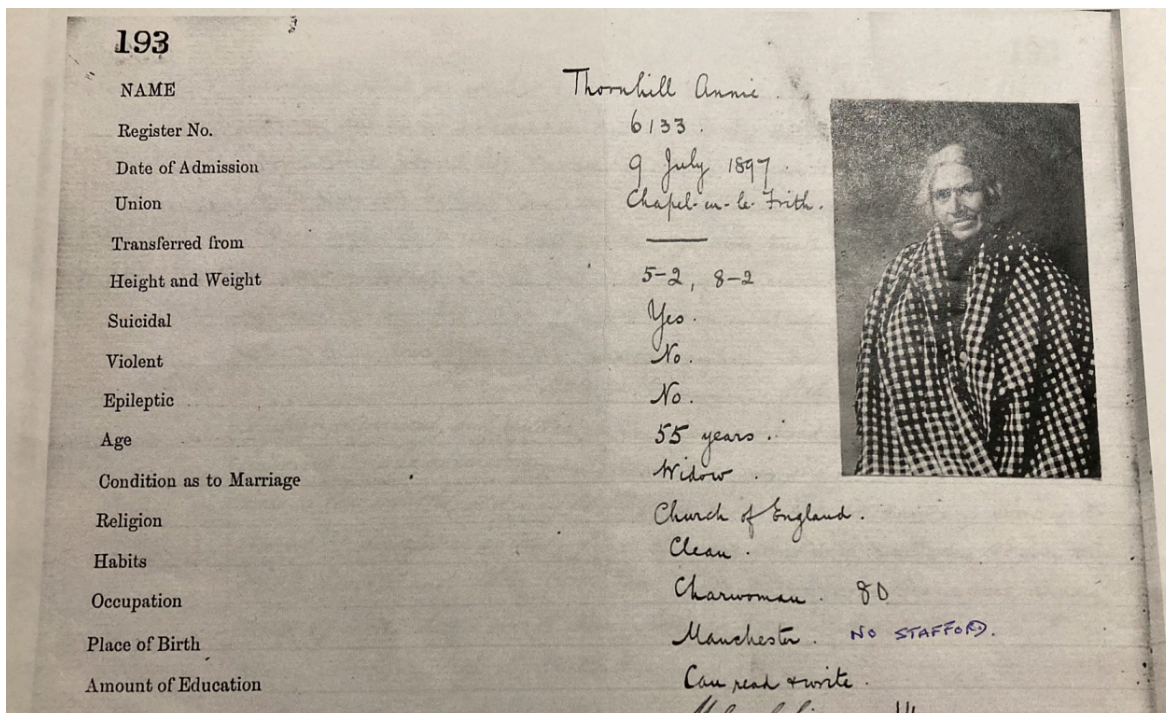 193
NAME Thornhill Annie
Register No. 6133.
Date of Admission 9 July 1897.
Union Chapel-en-le-Frith.
Transferred from —
Height and Weight 5-2, 8-2
Suicidal Yes.
Violent No.
Epileptic No.
Age 55 years.
Condition as to Marriage Widow.
Religion Church of England.
Habits Clean.
Occupation Charwoman. 80
Place of Birth Manchester. NO STAFFORD.
Amount of Education Can read & write.